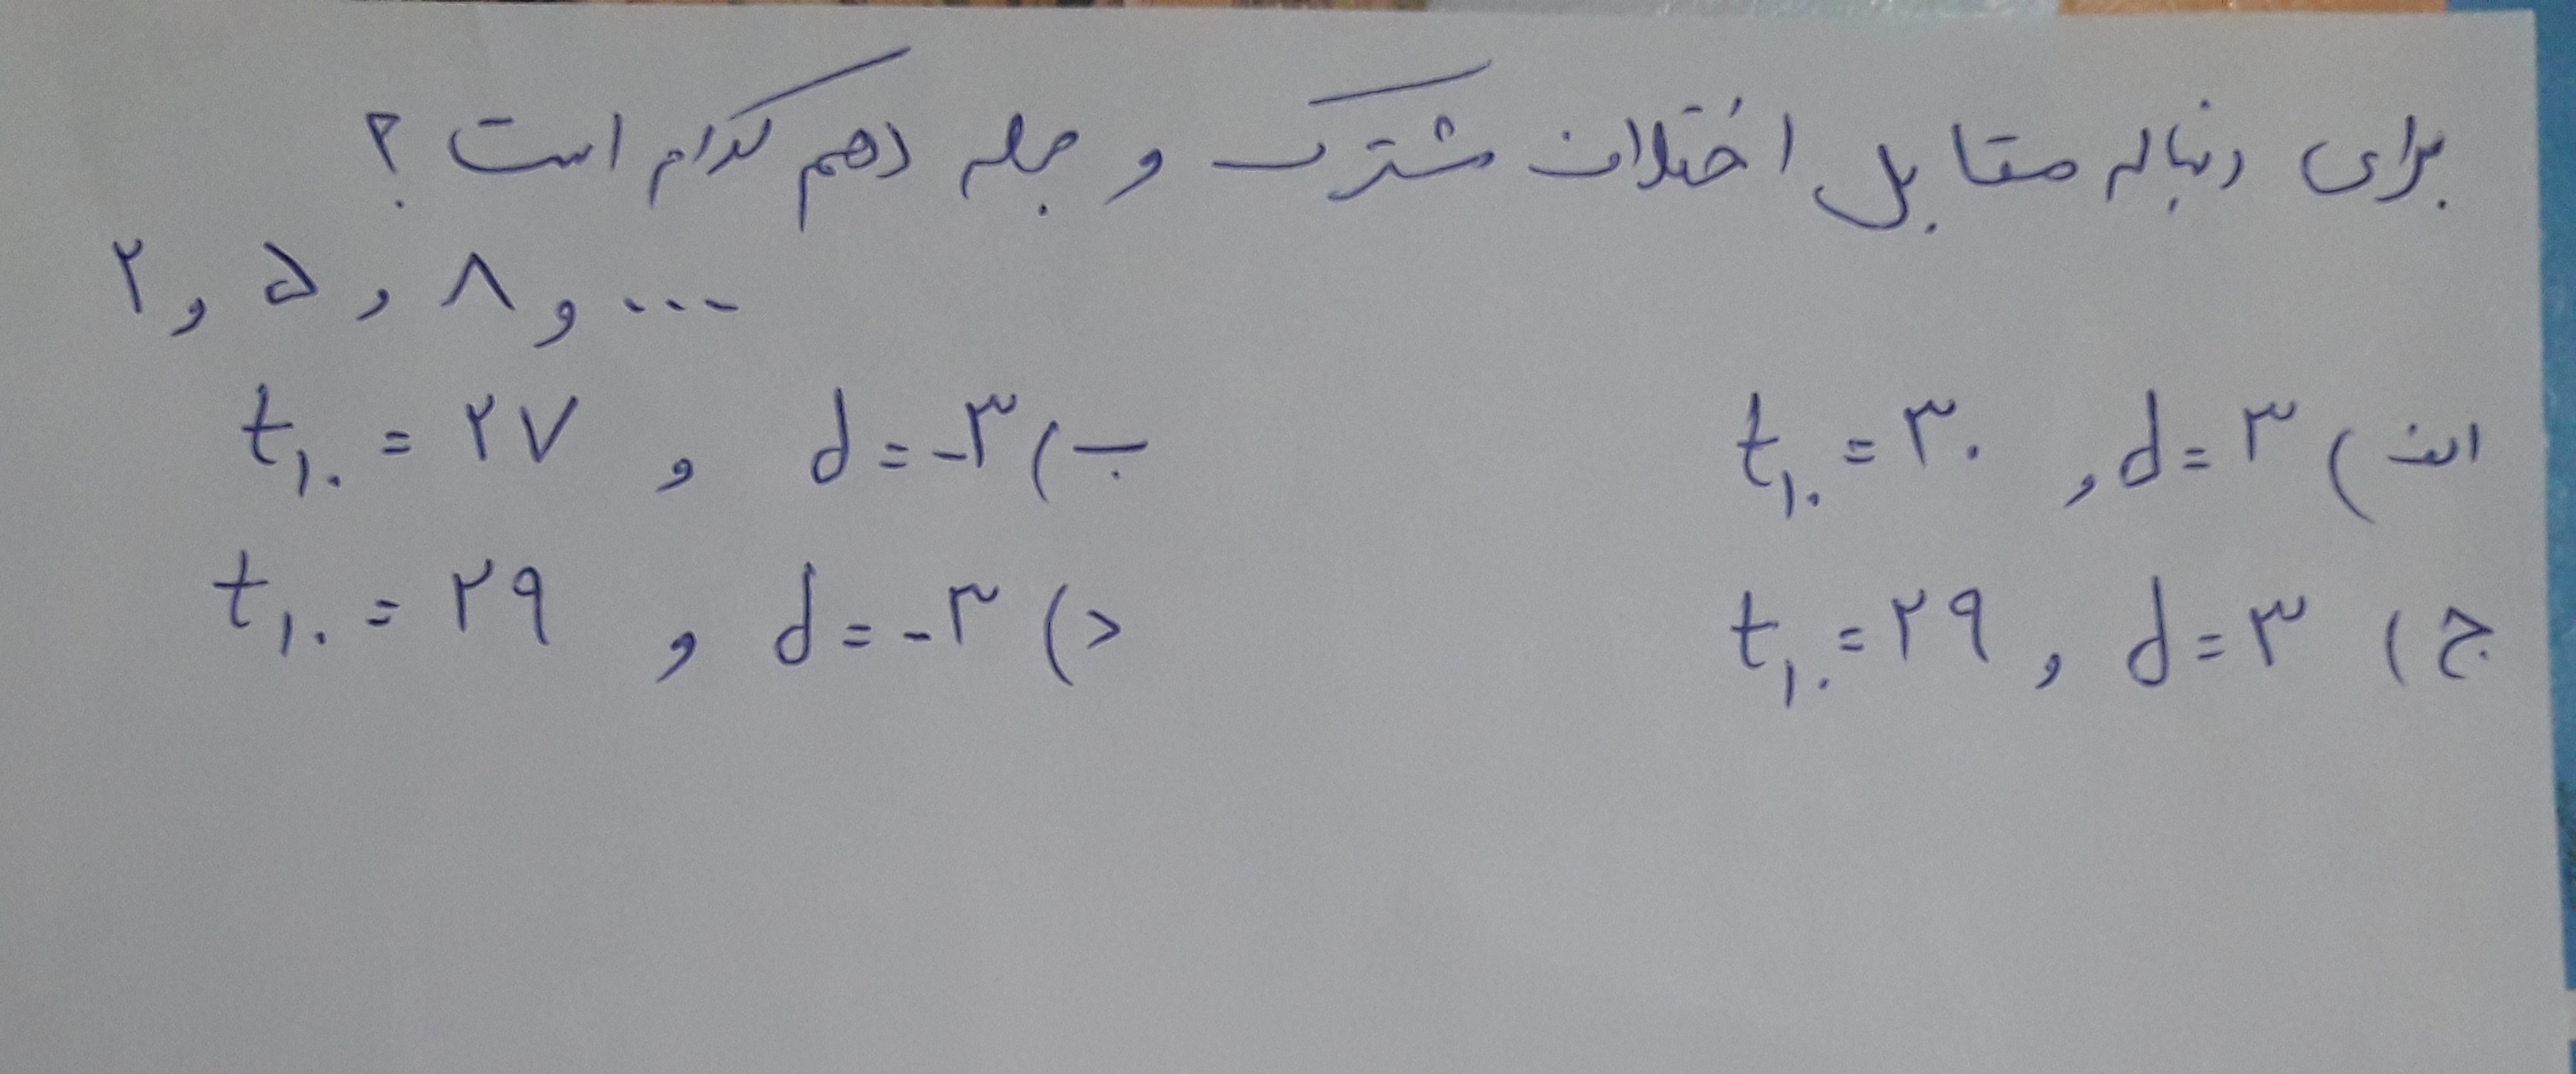 برای دنباله مقابل اختلاف مشترک و جمله دهم کدام است ؟
۲ , ۵ , ۸ و ...
الف ) d = ۳ , t₁₀ = ۳۰
ب ) d = -۳ و t₁₀ = ۲۷
ج ) d = ۳ و t₁₀ = ۲۹
د ) d = -۳ و t₁₀ = ۲۹